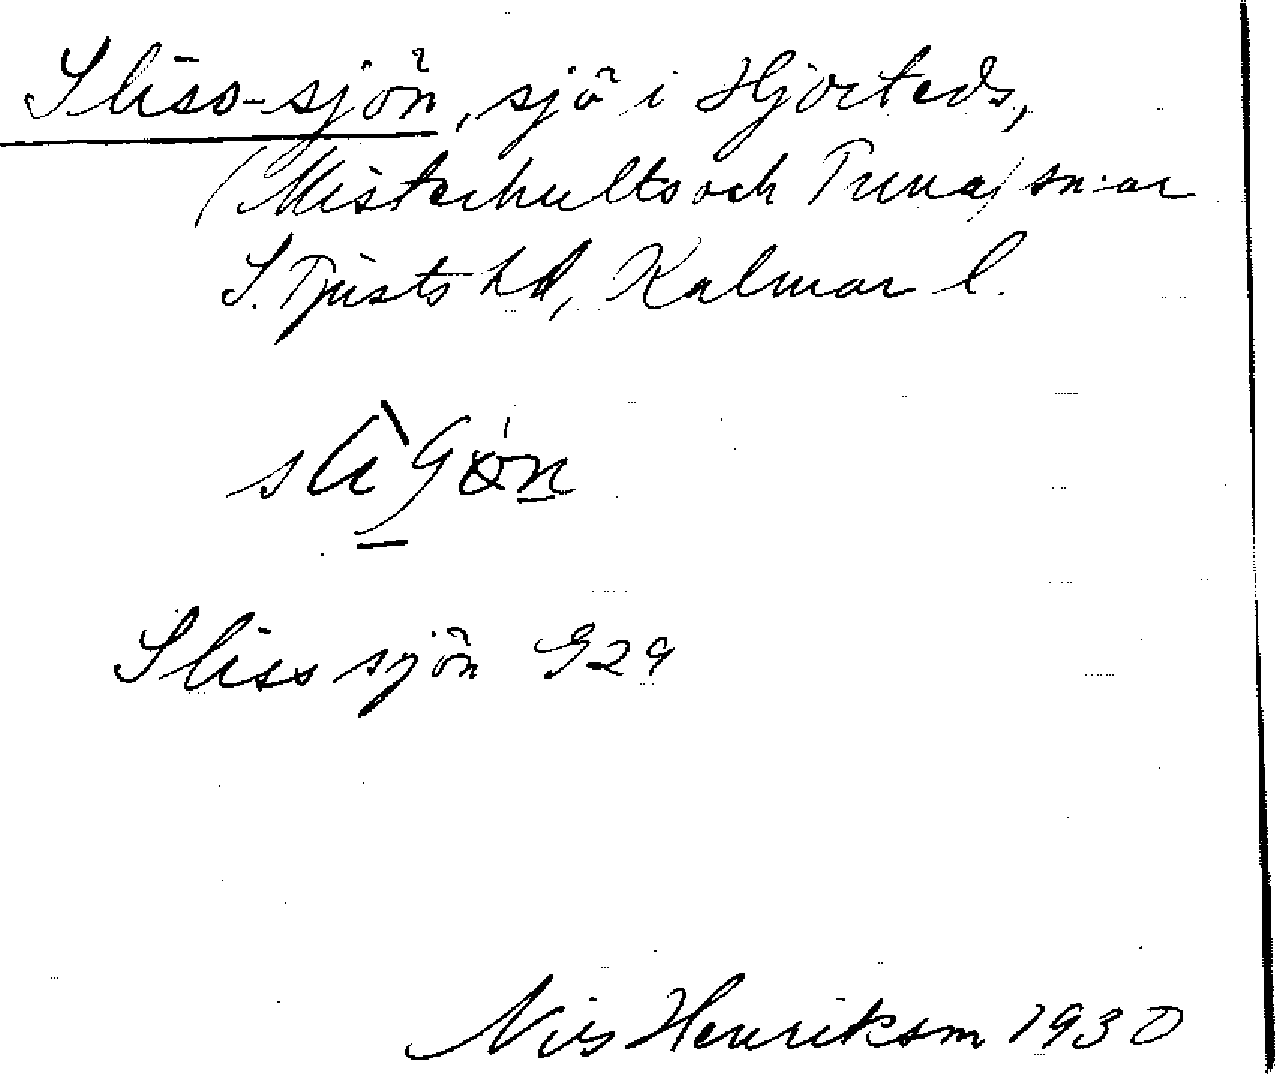 Sliso-sjön, sjö i Hjorteds,
(Misterhults och Tuna) sn:ar
S. Tjusts hd, Kalmar l.
Slisssjön G29
Nils Henriksson 1930